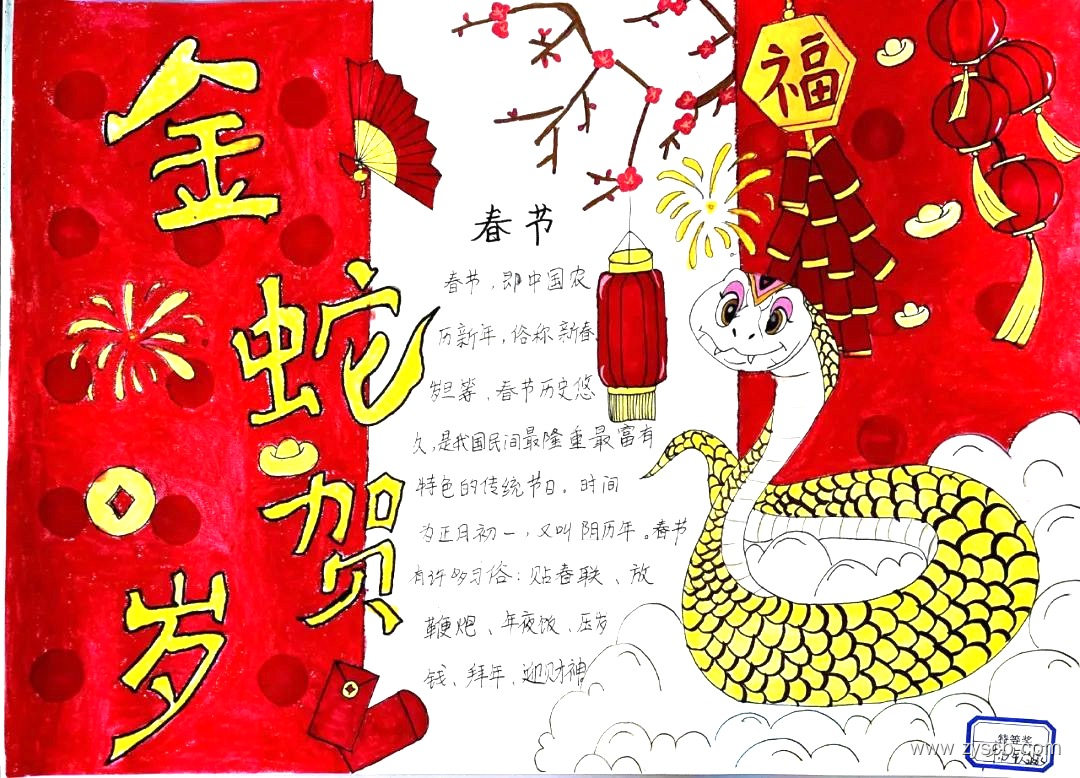 金
蛇
贺
岁
福
春节
春节，即中国农
历新年，俗称新春、
岁旦等，春节历史悠
久，是我国民间最隆重最富有
特色的传统节日。时间
为正月初一，又叫阴历年。春节
有许多习俗：贴春联、放
鞭炮、年夜饭、压岁
钱、拜年、迎财神
特等奖
www.zyscb.com